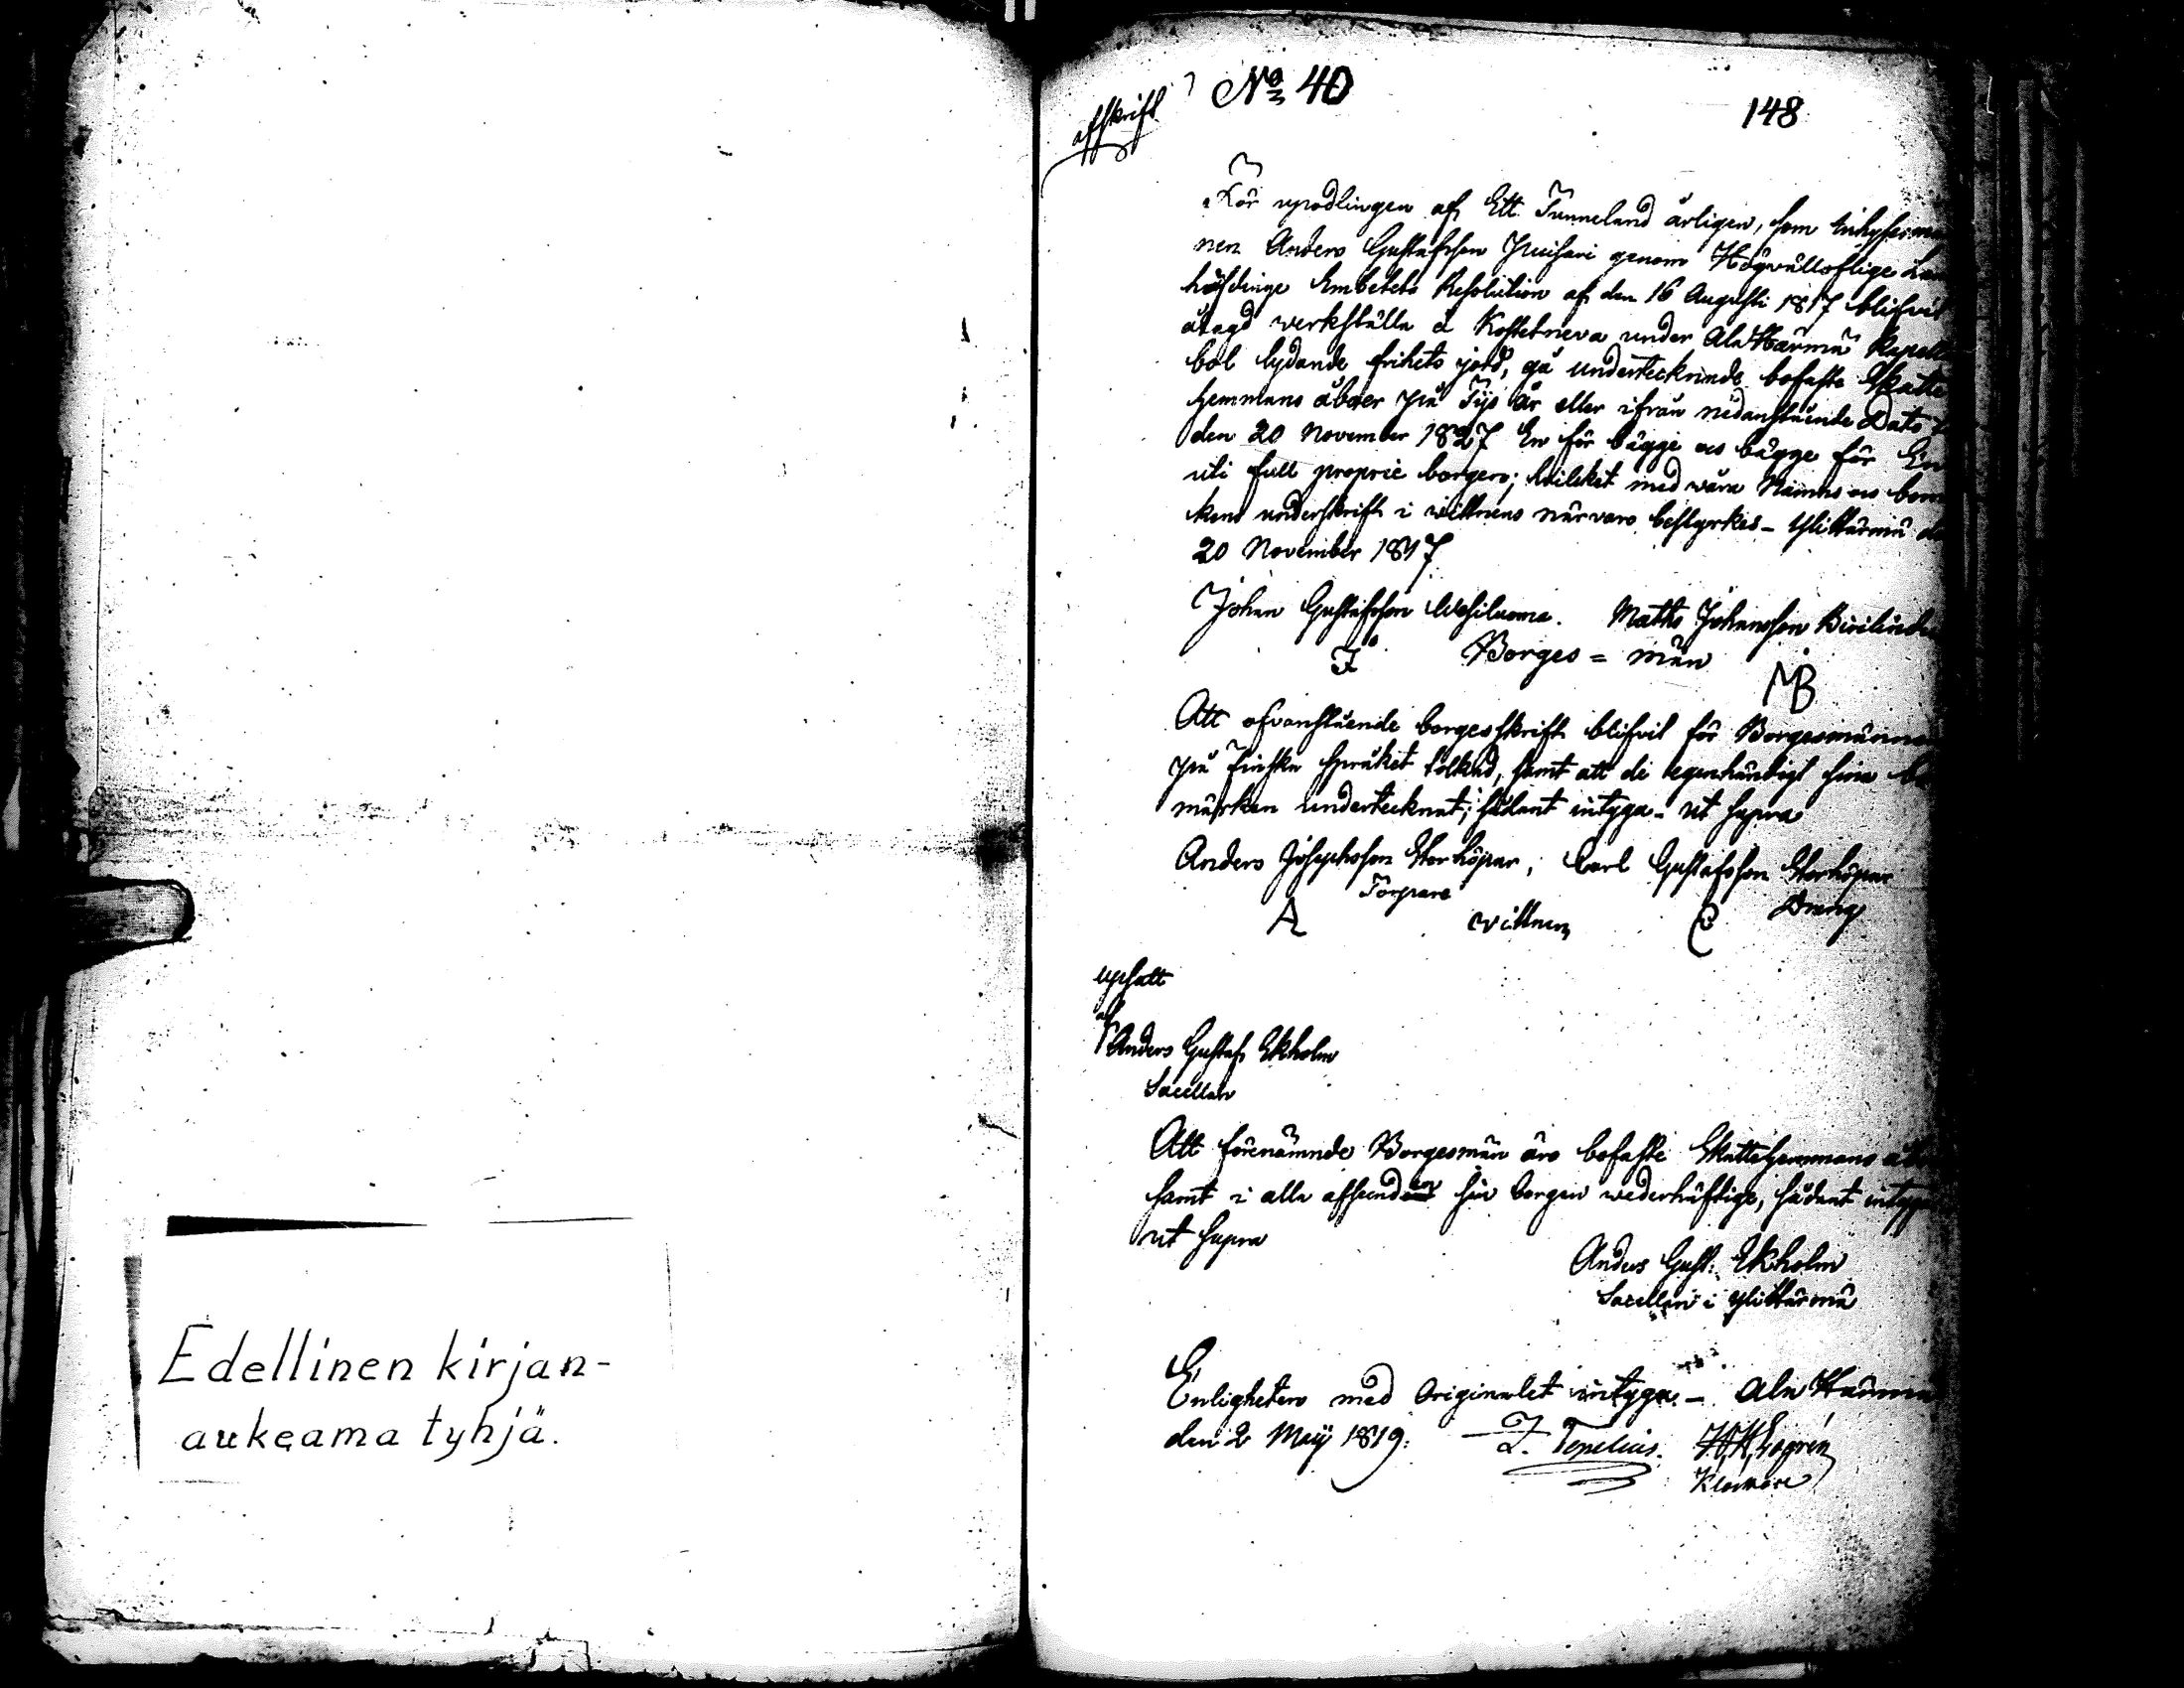 Edellinen kirjan-
aukeama tyhjä.
afskrift
No 40
148
För upodlingen af Ett Tunneland årligen, som
nen Anders Gustafsson genom Högvälloflige
höfdinge Embetets Resolution af den 16 Augusti 1817 blifvit
ålagd verkställa å under Ala Härmä Kapell
bol lydande frihets jord, gå undertecknade besutne Skatte
hemmans åboer på Tijo år eller ifrån nedanstående Dato
den 20 November 1827 En för bägge os bägge för En
uti full proprie borgen; hvilket med våra Namns os
kens underskrift i vittnens närvaro bestyrkes - Ylihärmä
20 November 1817
Johan Gustafsson Wesiluoma. Matts Johansson
Borges = män
MB
Att ofvanstående borgesskrift blifvit för Borgesmännen
på Finska språket tolkad, samt att de egenhändigt sina
märken undertecknat; sådant intyga - ut supra
Anders Josephsson Storhöpar, Carl Gustafsson Storhöpar
Torpare
Dreng
A vittnen C
upsatt
af
Anders Gustaf Ekholm
Sacellan
Att förenämnde Borgesmän äro besutne Skattehemmans
samt i alla afseenden för borgen wederhäftige, sådant intygar
ut supra
Anders Gust: Ekholm
Sacellan i Ylihärmä
Enligheten med Originalet intyga - Ala Härmä
den 2 Maij 1819. Z. Topelius.
Klockare